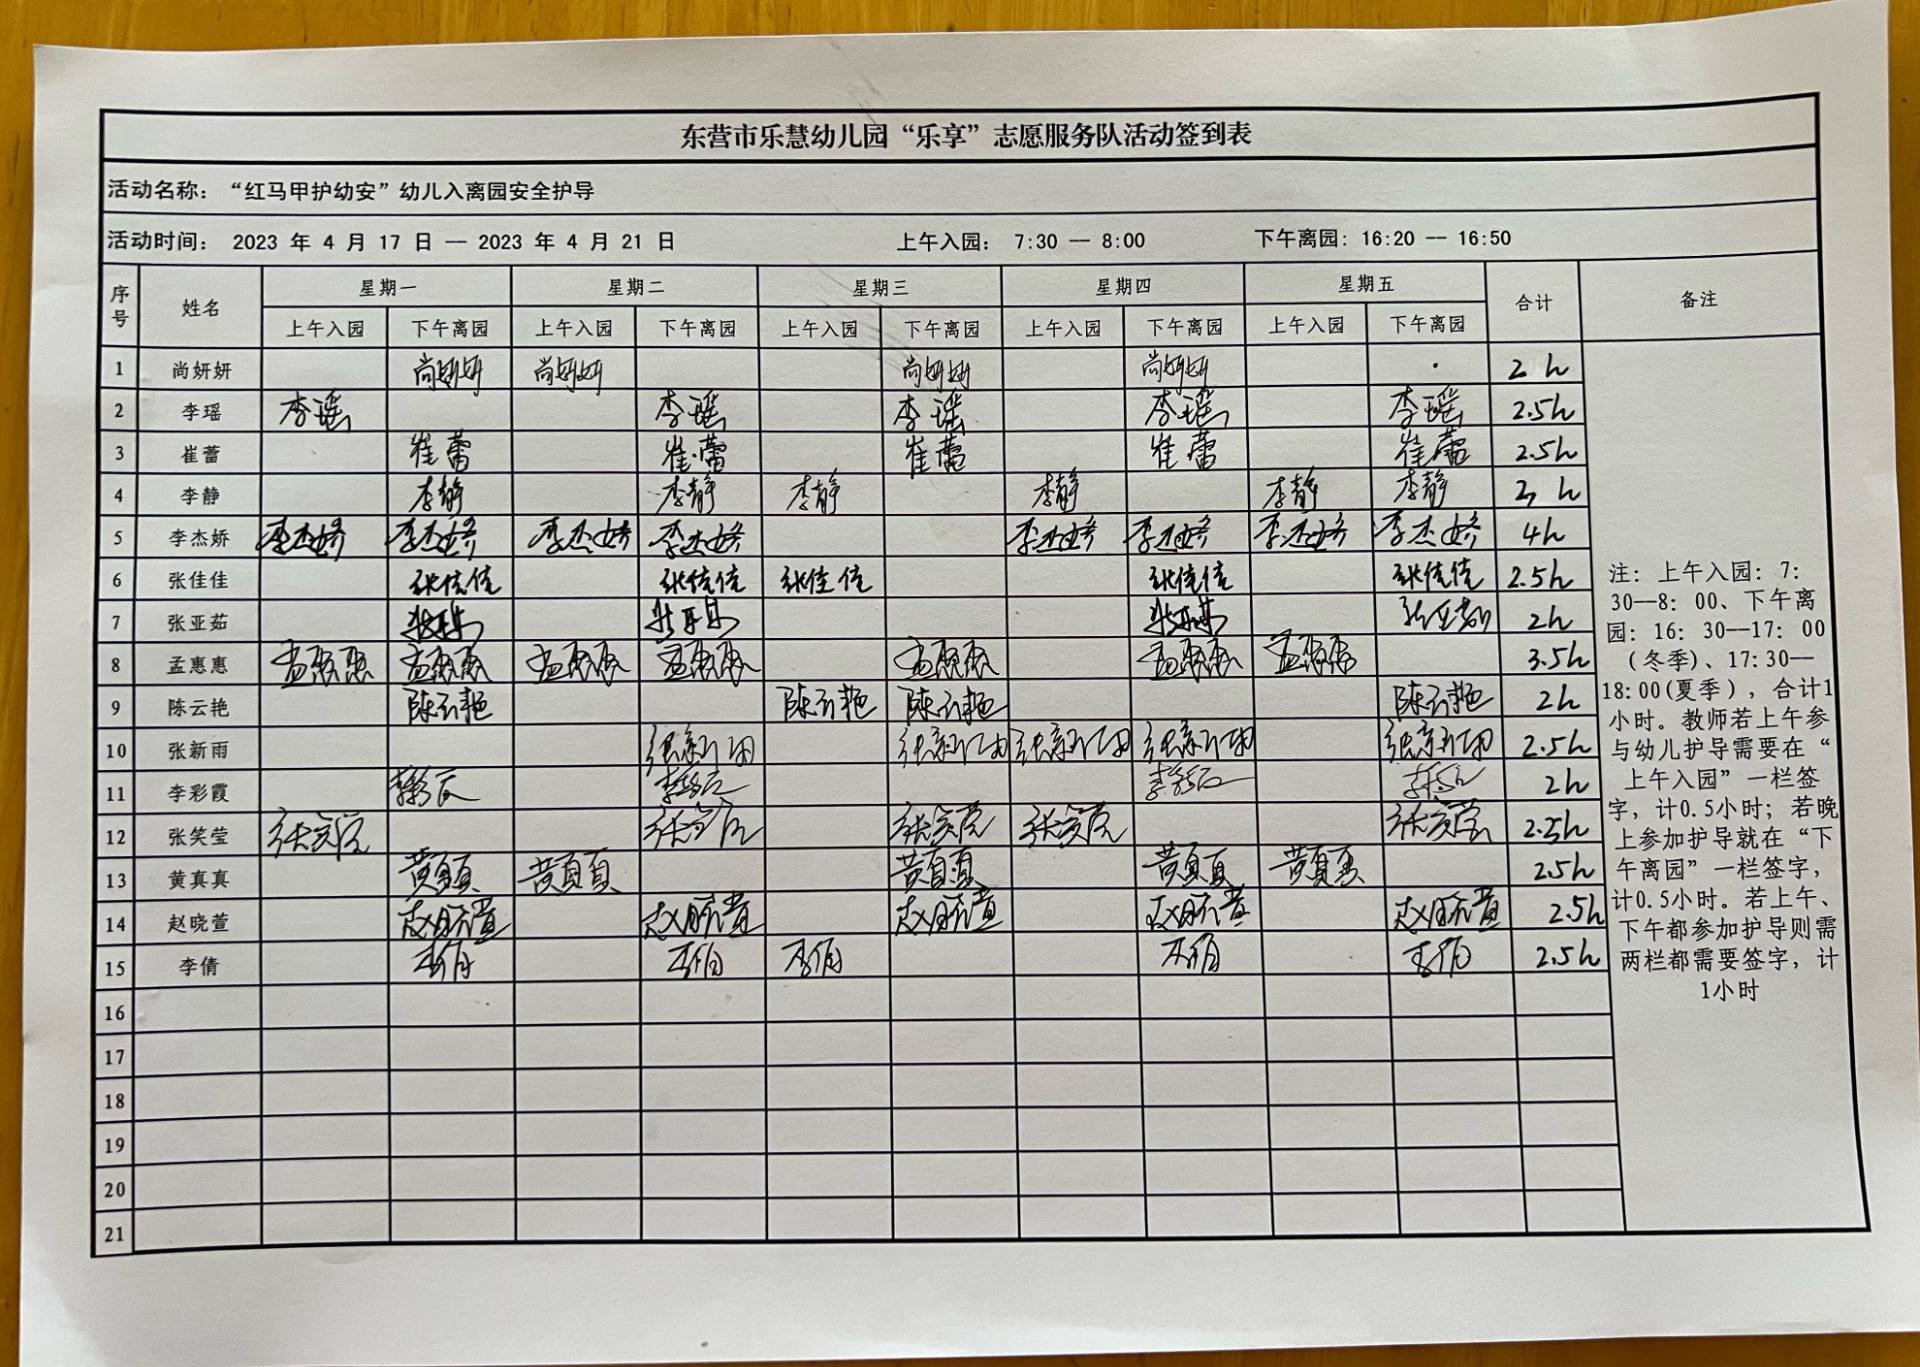 东营市乐慧幼儿园“乐享”志愿服务队活动签到表
活动名称：“红马甲护幼安”幼儿入离园安全护导
活动时间： 2023 年 4 月 17 日 -- 2023 年 4 月 21 日 上午入园： 7:30 -- 8:00 下午离园：16:20 -- 16:50
序号 姓名 星期一 星期二 星期三 星期四 星期五 合计 备注
上午入园 下午离园 上午入园 下午离园 上午入园 下午离园 上午入园 下午离园 上午入园 下午离园
1 尚妍妍 尚妍妍 尚妍妍 尚妍妍 尚妍妍 2 h
2 李瑶 李瑶 李瑶 李瑶 李瑶 李瑶 2.5h
3 崔蕾 崔蕾 崔蕾 崔蕾 崔蕾 崔蕾 2.5h
4 李静 李静 李静 李静 李静 李静 李静 3 h
5 李杰娇 李杰娇 李杰娇 李杰娇 李杰娇 李杰娇 李杰娇 李杰娇 李杰娇 4h
6 张佳佳 张佳佳 张佳佳 张佳佳 张佳佳 张佳佳 2.5h
7 张亚茹 张亚茹 张亚茹 张亚茹 张亚茹 2h
8 孟惠惠 孟惠惠 孟惠惠 孟惠惠 孟惠惠 孟惠惠 孟惠惠 孟惠惠 3.5h
9 陈云艳 陈云艳 陈云艳 陈云艳 陈云艳 2h
10 张新雨 张新雨 张新雨 张新雨 张新雨 张新雨 2.5h
11 李彩霞 李彩霞 李彩霞 李彩霞 李彩霞 2h
12 张笑莹 张笑莹 张笑莹 张笑莹 张笑莹 张笑莹 2.5h
13 黄真真 黄真真 黄真真 黄真真 黄真真 黄真真 2.5h
14 赵晓萱 赵晓萱 赵晓萱 赵晓萱 赵晓萱 赵晓萱 2.5h
15 李倩 李倩 李倩 李倩 李倩 李倩 2.5h
16
17
18
19
20
21
注：上午入园：7：
30—8：00、下午离
园：16：30—17：00
（冬季）、17:30—
18:00(夏季），合计1
小时。教师若上午参
与幼儿护导需要在“
上午入园”一栏签
字，计0.5小时；若晚
上参加护导就在“下
午离园”一栏签字，
计0.5小时。若上午、
下午都参加护导则需
两栏都需要签字，计
1小时